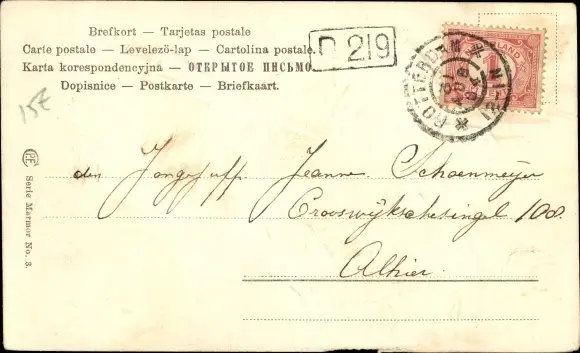 Brefkort — Tarjetas postale
Carte postale — Levelezö-lap — Cartolina postale.
Karta korespondencyjna — ОТКРЫТОЕ ПИСЬМО.
Dopisnice — Postkarte — Briefkaart.
D 219
ROTTERDAM
12-1N
15E
den Jongejuff. Jeanne Schoenmeyer
Crooswijkschesingel 108.
Alhier.
Serie Marmor No. 3.